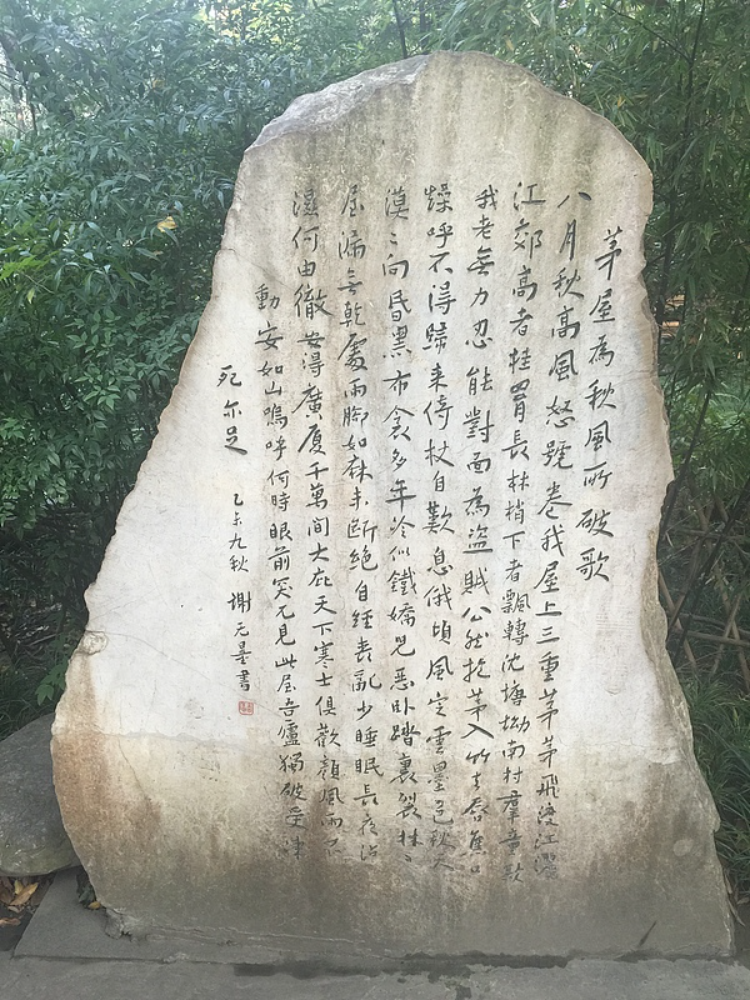 茅屋為秋風所破歌
八月秋高風怒號卷我屋上三重茅茅飛渡江灑
江郊高者挂罥長林梢下者飄轉沈塘坳南村羣童欺
我老無力忍能對面為盜賊公然抱茅入竹去唇焦口
燥呼不得歸来倚杖自歎息俄頃風定雲墨色秋天
漠〻向昏黑布衾多年冷似鐵嬌兒惡卧踏裏裂牀〻
屋漏無乾處雨脚如麻未斷絕自經喪亂少睡眠長夜沾
濕何由徹安得廣厦千萬間大庇天下寒士俱歡顔風雨不
動安如山嗚呼何時眼前突兀見此屋吾廬獨破受凍
死亦足
乙未九秋 謝无量書